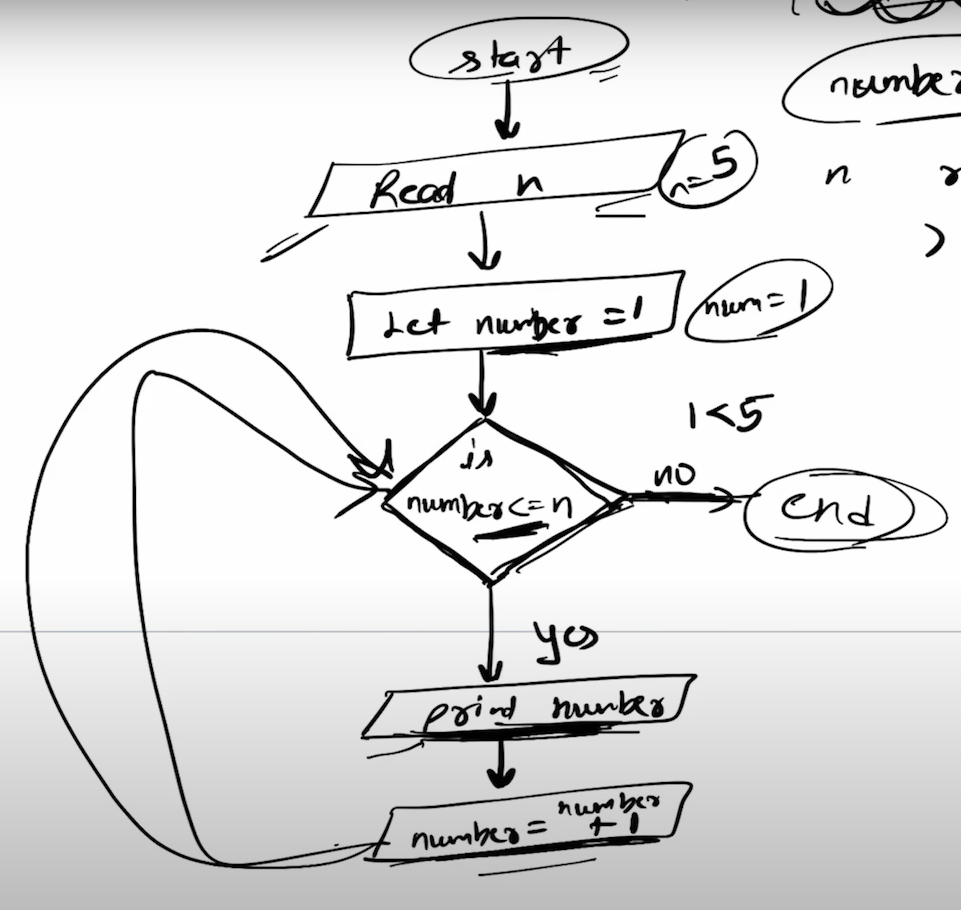 start
number
Read n
n=5
n
Let number =1
num=1
1<5
is
number<=n
no
end
yes
print number
number = number
+ 1